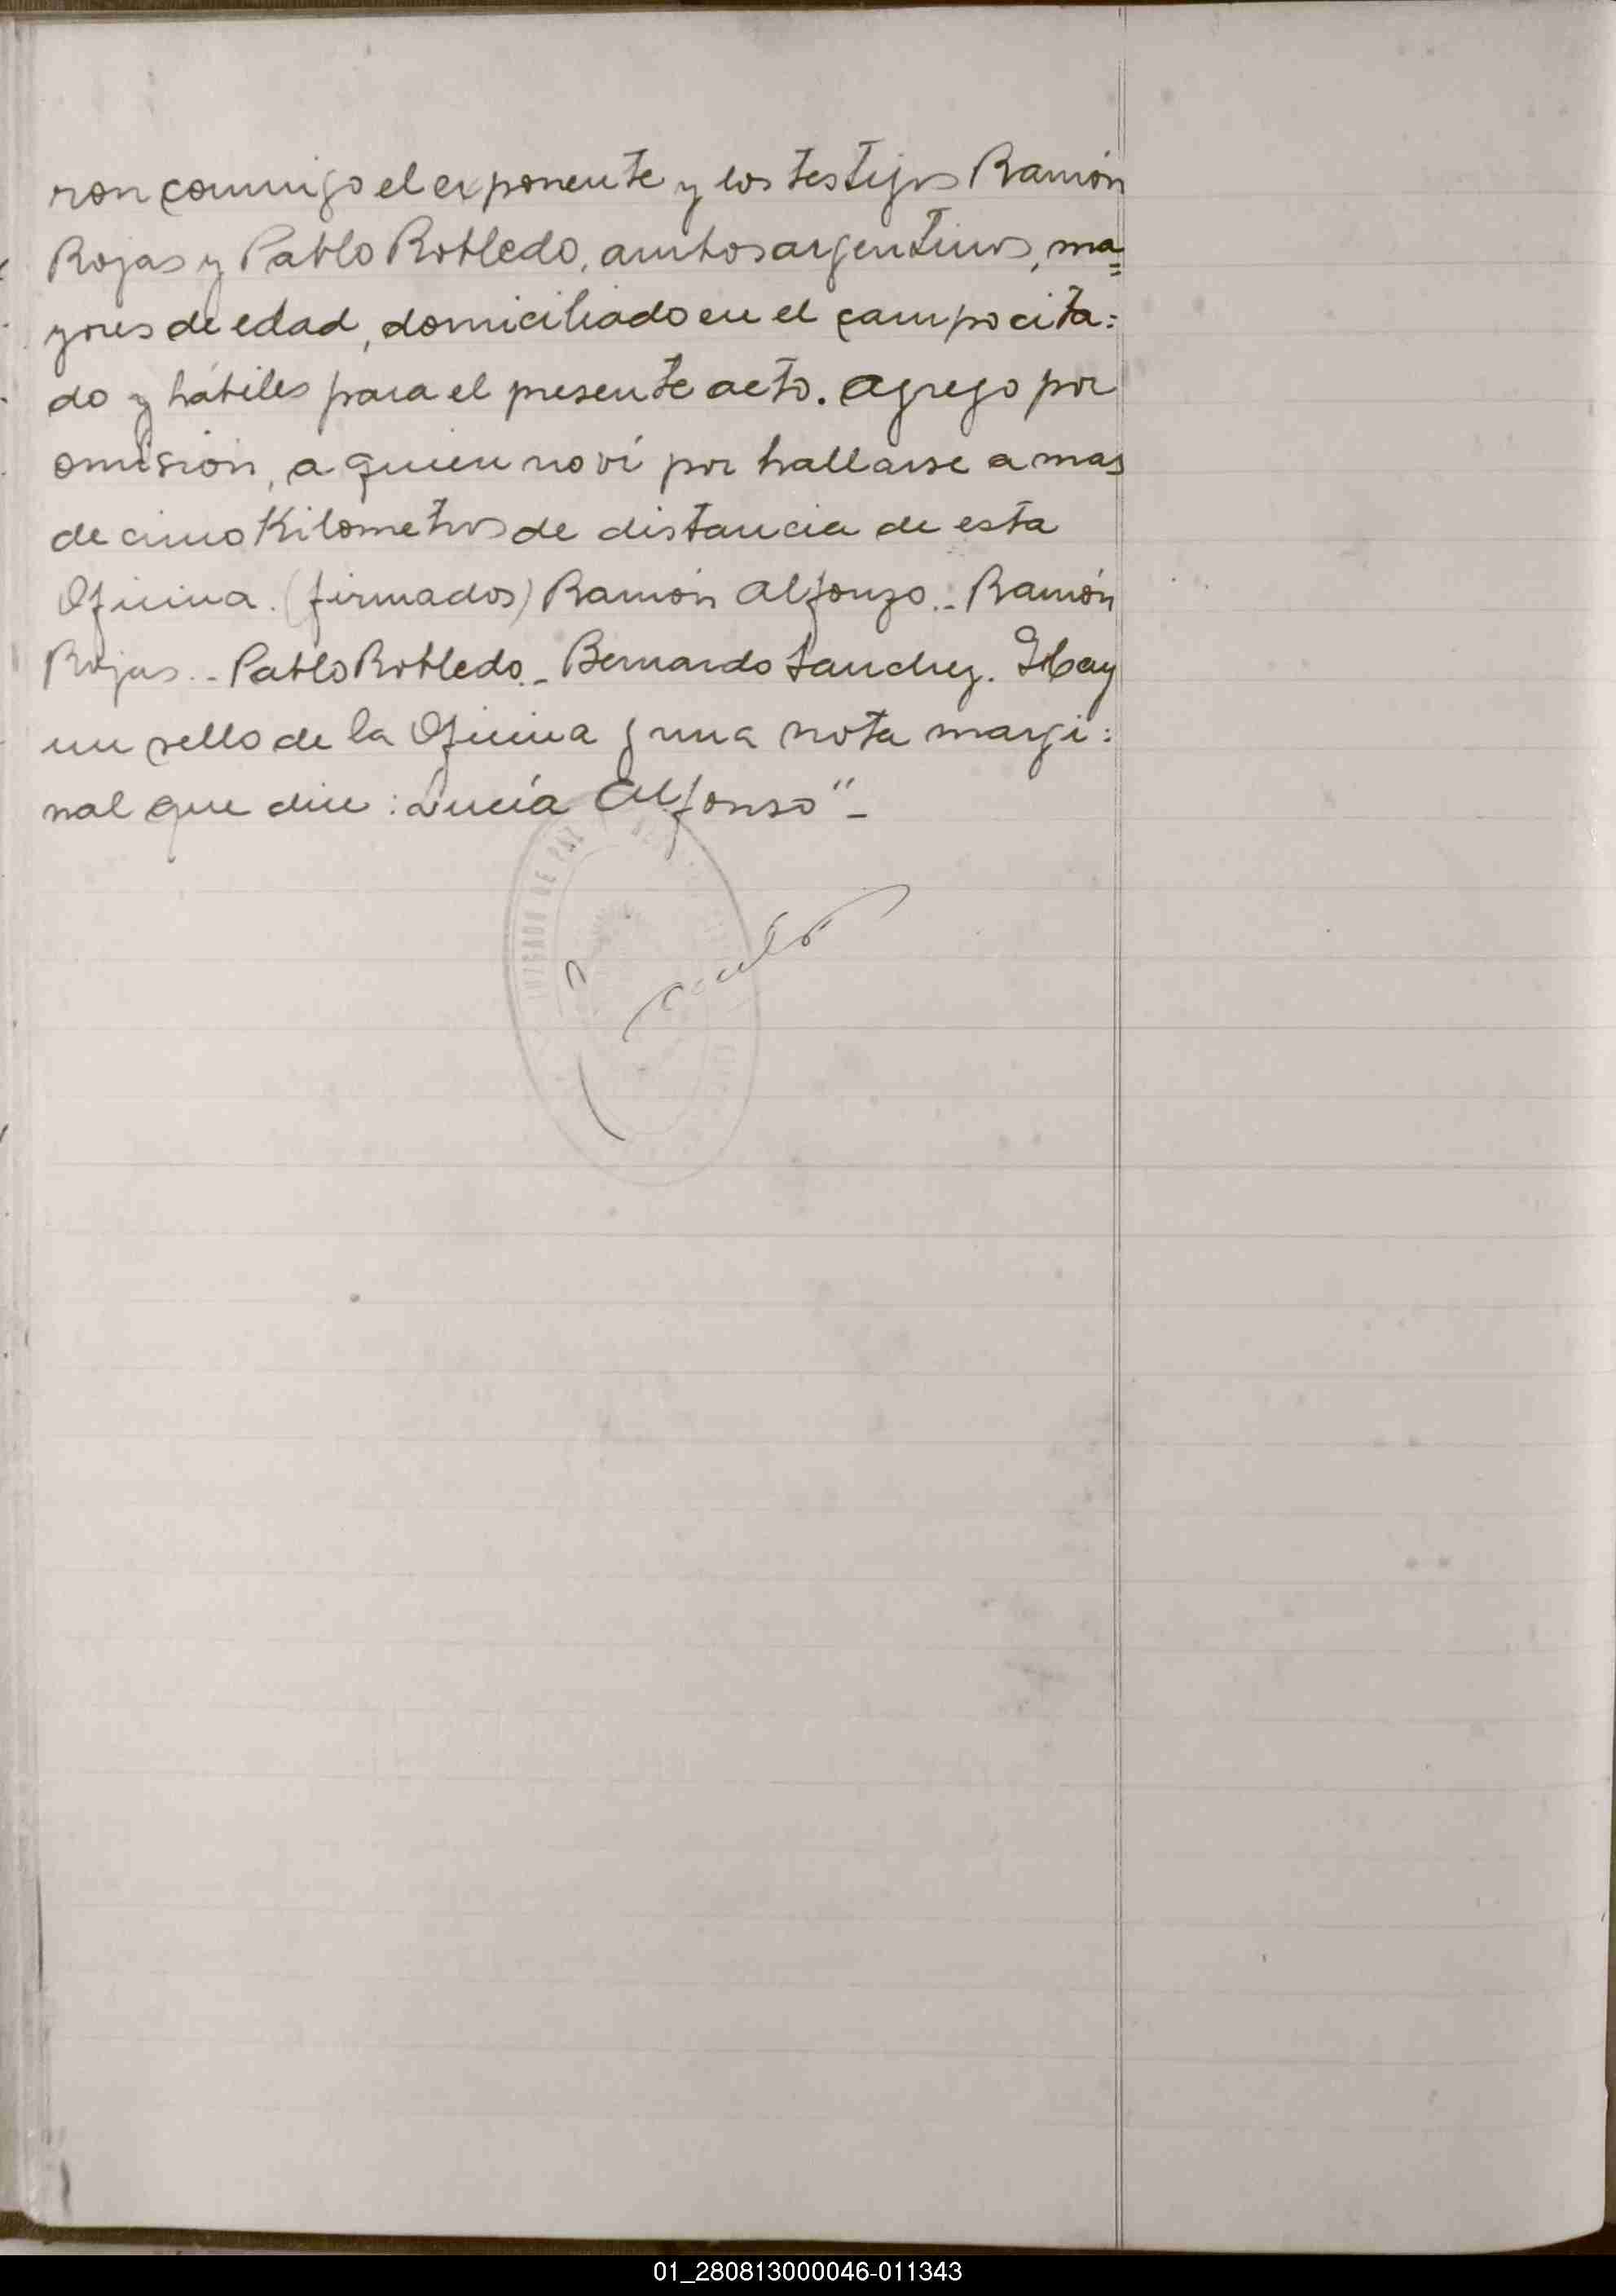 ron conmigo el exponente y los testigos Ramón
Rojas y Pablo Robledo, ambos argentinos, ma=
yores de edad, domiciliado en el campo cita=
do y hábiles para el presente acto. Agrego por
omision, a quien no ví por hallarse a mas
de cinco Kilometros de distancia de esta
Oficina. (firmados) Ramón Alfonzo.- Ramón
Rojas.- Pablo Robledo.- Bernardo Sanchez. Hay
un sello de la Oficina y una nota margi=
nal que dice: Lucía Alfonso"-
JUZGADO DE PAZ
01_280813000046-011343